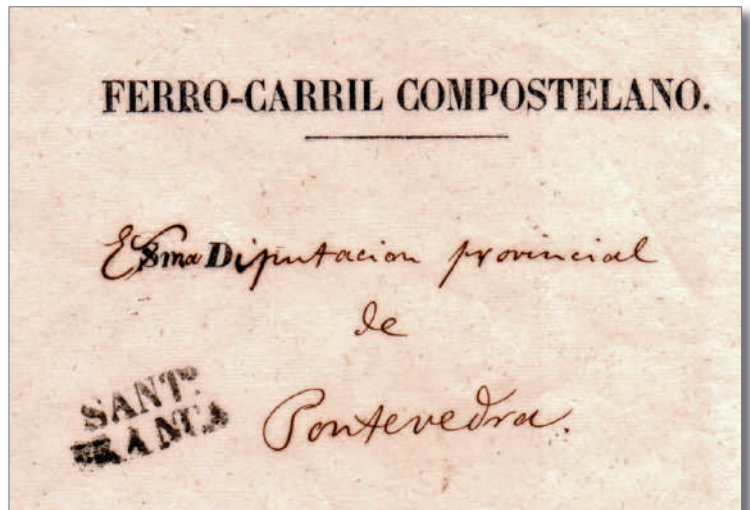 FERRO-CARRIL COMPOSTELANO.
Esma Diputacion provincial
de
Pontevedra.
SANTº.
FRANCA